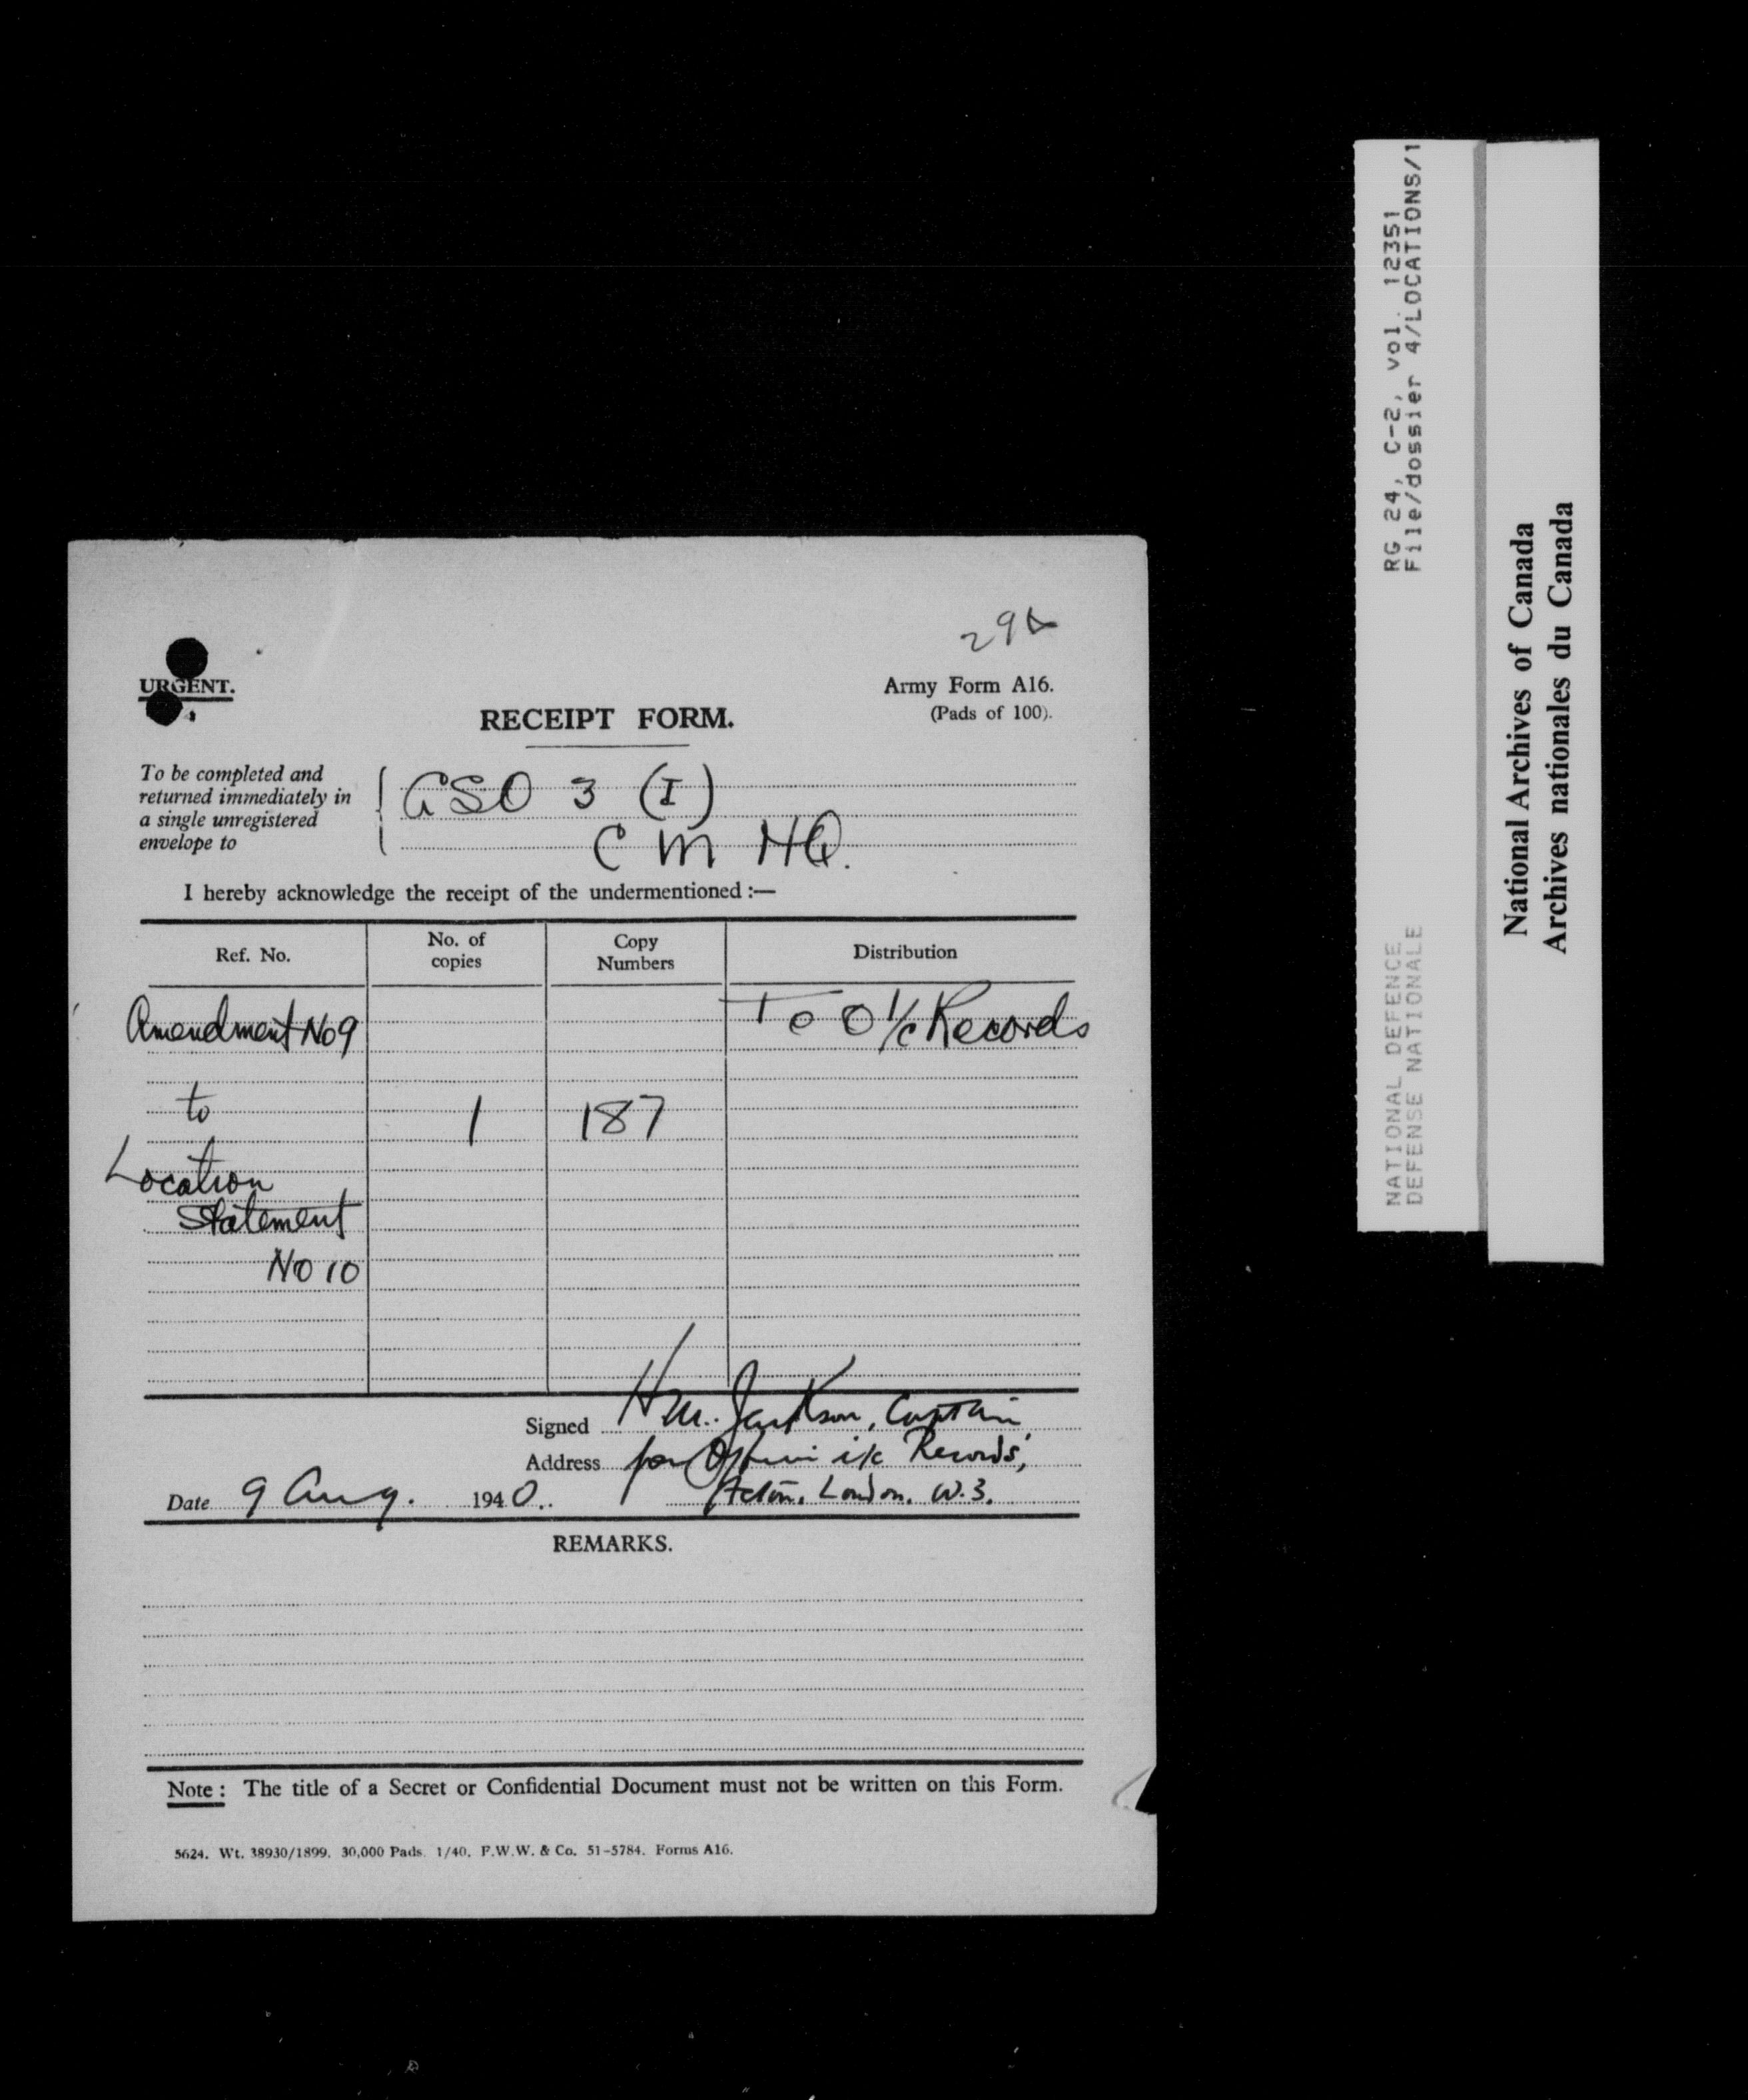 29A
URGENT.
Army Form A16.
(Pads of 100).
RECEIPT FORM.
To be completed and
returned immediately in
a single unregistered
envelope to
GSO 3 (I)
C M HQ.
I hereby acknowledge the receipt of the undermentioned :—
Ref. No.
No. of
copies
Copy
Numbers
Distribution
Amendment No 9
to
Location
Statement
No 10
1
187
To O i/c Records
Signed H M. Jackson, Captain
Address for Officer i/c Records,
Acton. London. W.3.
Date 9 Aug. 1940.
REMARKS.
Note : The title of a Secret or Confidential Document must not be written on this Form.
5624. Wt. 38930/1899. 30,000 Pads. 1/40. F.W.W. & Co. 51-5784. Forms A16.
RG 24, C-2, vol. 12351
File/dossier 4/LOCATIONS/1
NATIONAL DEFENCE
DEFENSE NATIONALE
National Archives of Canada
Archives nationales du Canada